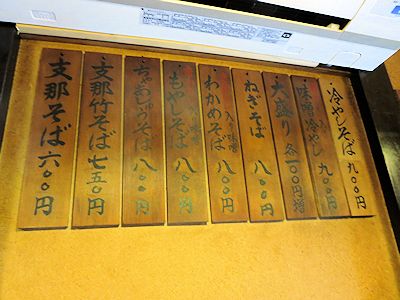 冷やしそば 九〇〇円
味噌冷やし 九〇〇円
大盛り 各一〇〇円増
ねぎそば 八〇〇円
わかめそば 八〇〇円
もやしそば 八〇〇円
ちゃあしゅうそば 八〇〇円
支那竹そば 七五〇円
支那そば 六〇〇円